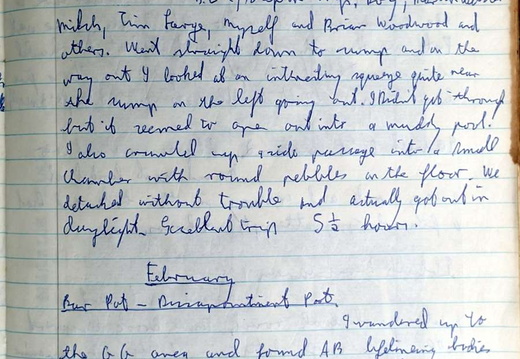 Milch, Tim Large, Myself and Brian Woodwood and
others. Went straight down to sump and on the
way out I looked at an interesting squeeze quite near
the sump on the left going out. I didn't get through
but it seemed to open out into a muddy pool.
I also crawled up a side passage into a small
chamber with round pebbles on the floor. We
detackled without trouble and actually got out in
daylight. Excellent trip 5½ hours.
February
Bar Pot – Disappointment Pot.
I wandered up to
the GG area and found AB lifelining bodies